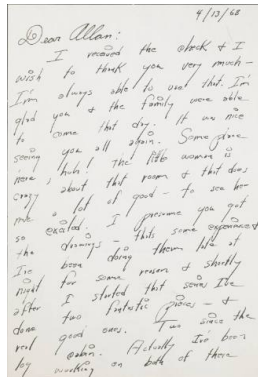 4/13/68
Dear Allan:
I received the check & I
wish to thank you very much -
I'm always able to use that. I'm
glad you & the family were able
to come that day. It was nice
seeing you all again. Some place
here's hub! The little woman is
crazy about that room & that does
me a lot of good - to see her
so excited. I presume you got
the drawings - that's some experience
I've been doing them late at
night for some reason & shortly
after I started that series I've
done two fantastic pieces - &
real good ones. Two since the
Actually I've been
by working on both of these